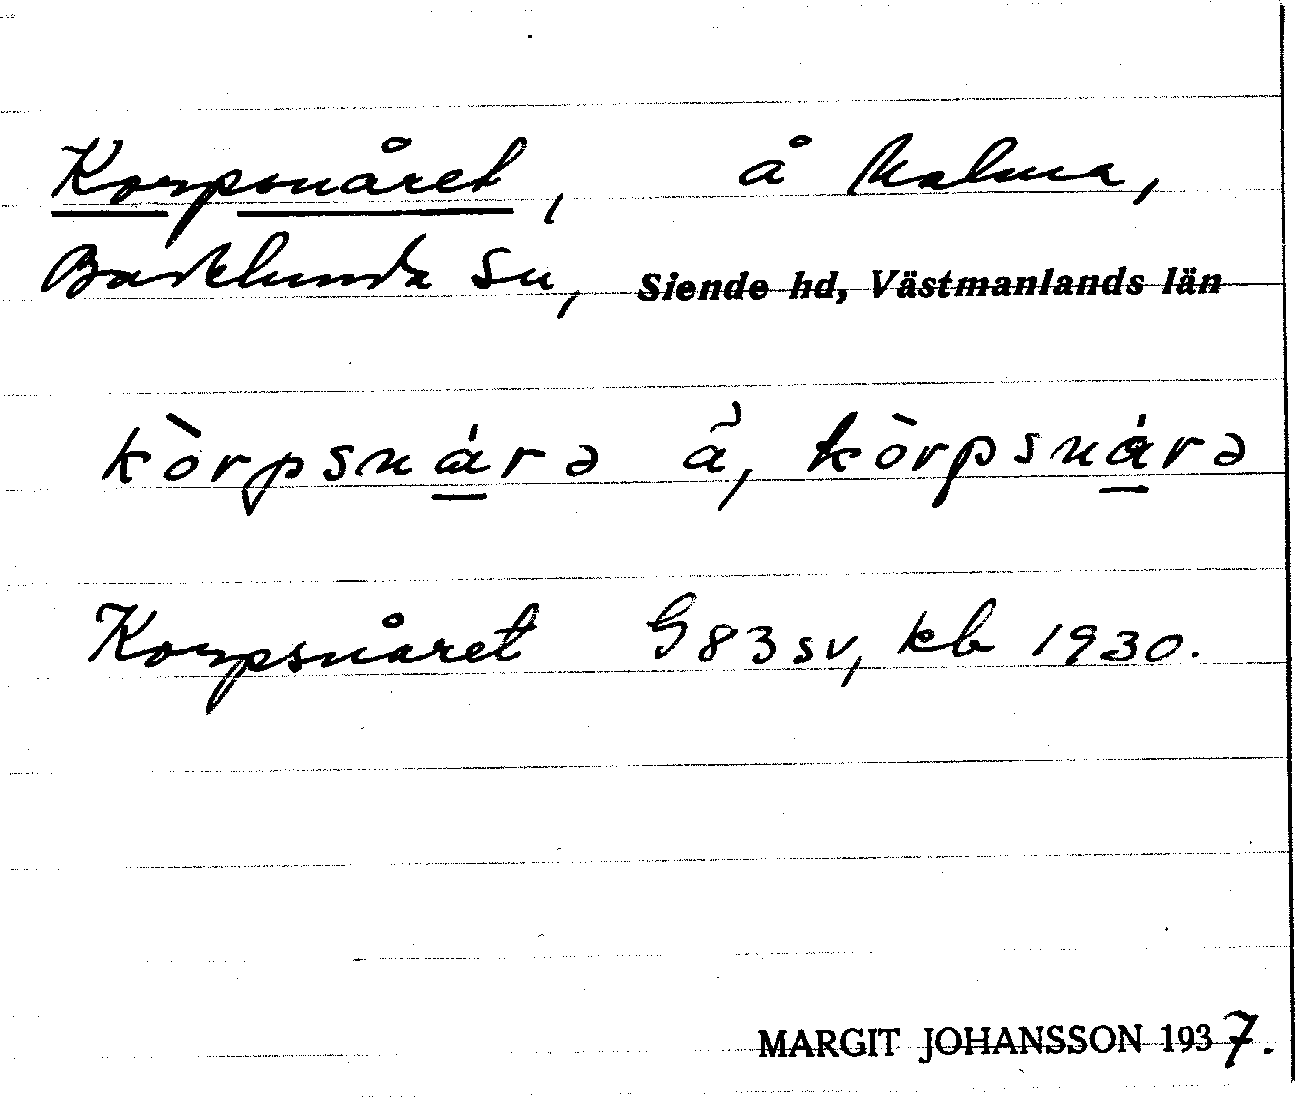 Korpsnåret, å Malma,
Barklunda sn, Siende hd, Västmanlands län
kòrpsnárə å, kòrpsnárə
Korpsnåret G83sv, kb 1930.
MARGIT JOHANSSON 1937.